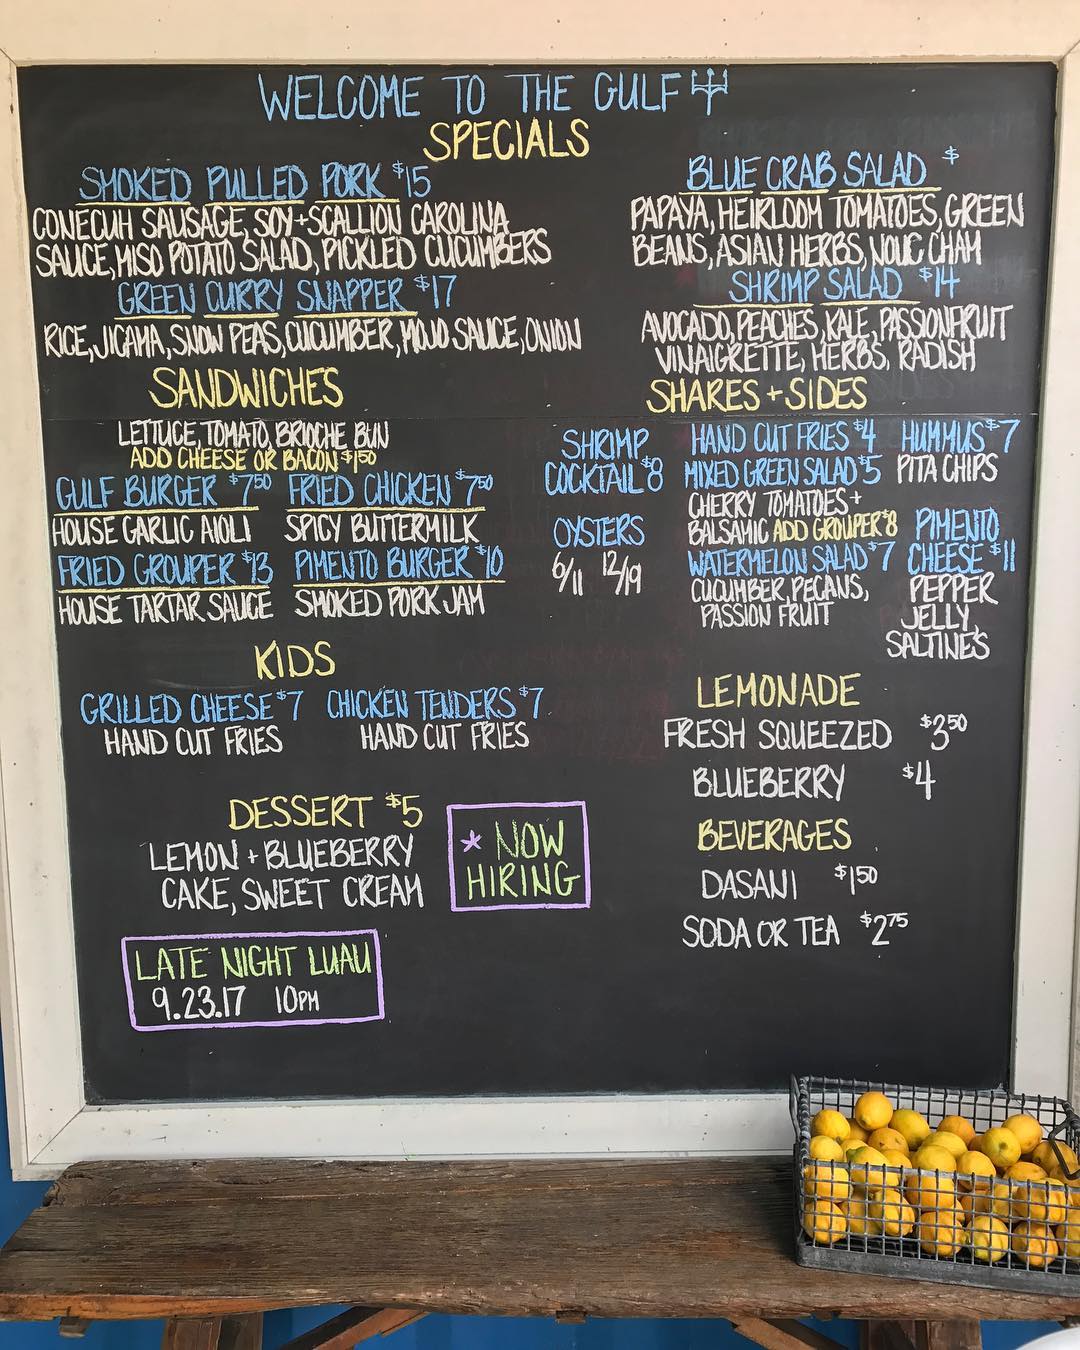 WELCOME TO THE GULF
SPECIALS
SMOKED PULLED PORK $15
CONECUH SAUSAGE, SOY+SCALLION CAROLINA
SAUCE, MISO POTATO SALAD, PICKLED CUCUMBERS
GREEN CURRY SNAPPER $17
RICE, JICAMA, SNOW PEAS, CUCUMBER, MOJO SAUCE, ONION
BLUE CRAB SALAD $
PAPAYA, HEIRLOOM TOMATOES, GREEN
BEANS, ASIAN HERBS, NOUC CHAM
SHRIMP SALAD $14
AVOCADO, PEACHES, KALE, PASSIONFRUIT
VINAIGRETTE, HERBS, RADISH
SANDWICHES
LETTUCE, TOMATO, BRIOCHE BUN
ADD CHEESE OR BACON $1.50
GULF BURGER $7.50
HOUSE GARLIC AIOLI
FRIED CHICKEN $7.50
SPICY BUTTERMILK
FRIED GROUPER $13
HOUSE TARTAR SAUCE
PIMENTO BURGER $10
SMOKED PORK JAM
SHARES + SIDES
SHRIMP
COCKTAIL $8
OYSTERS
6/11 12/19
HAND CUT FRIES $4
MIXED GREEN SALAD $5
CHERRY TOMATOES +
BALSAMIC ADD GROUPER $8
WATERMELON SALAD $7
CUCUMBER, PECANS,
PASSION FRUIT
HUMMUS $7
PITA CHIPS
PIMENTO
CHEESE $11
PEPPER
JELLY,
SALTINES
KIDS
GRILLED CHEESE $7
HAND CUT FRIES
CHICKEN TENDERS $7
HAND CUT FRIES
LEMONADE
FRESH SQUEEZED $3.50
BLUEBERRY $4
DESSERT $5
LEMON + BLUEBERRY
CAKE, SWEET CREAM
* NOW
HIRING
BEVERAGES
DASANI $1.50
SODA OR TEA $2.75
LATE NIGHT LUAU
9.23.17 10PM